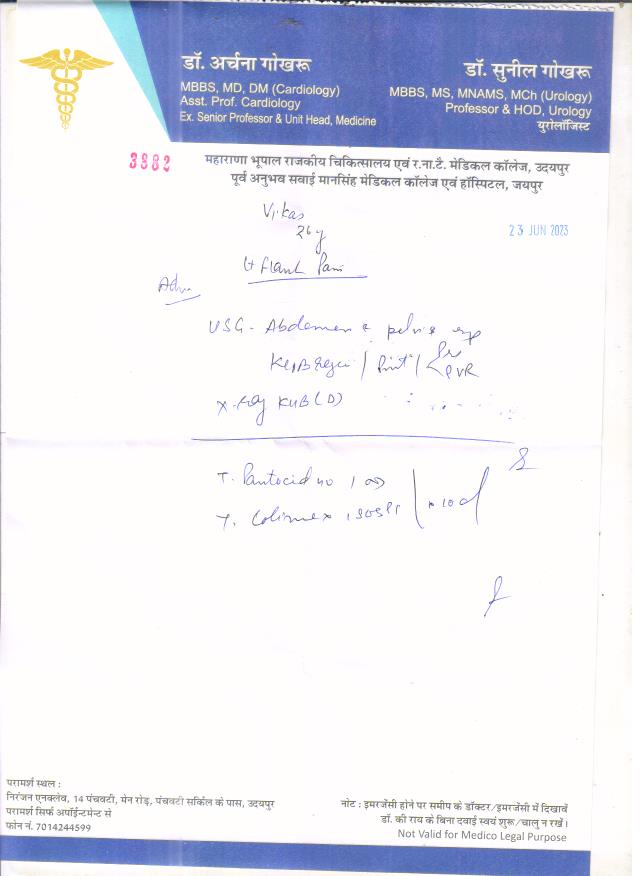 डॉ. अर्चना गोखरू
MBBS, MD, DM (Cardiology)
Asst. Prof. Cardiology
Ex. Senior Professor & Unit Head, Medicine
डॉ. सुनील गोखरू
MBBS, MS, MNAMS, MCh (Urology)
Professor & HOD, Urology
यूरोलॉजिस्ट
3982
महाराणा भूपाल राजकीय चिकित्सालय एवं र.ना.टै. मेडिकल कॉलेज, उदयपुर
पूर्व अनुभव सवाई मानसिंह मेडिकल कॉलेज एवं हॉस्पिटल, जयपुर
Vikas
26 y
23 JUN 2023
Lt Flank Pain
Adv
USG - Abdomen & pelvis
KUB region / /
PVR
X-Ray KUB (D)
T. Pantocid 40 1 OD
T. Colimex 1 SOS
x 10 d
परामर्श स्थल :
निरंजन एनक्लेव, 14 पंचवटी, मेन रोड़, पंचवटी सर्किल के पास, उदयपुर
परामर्श सिर्फ अपॉईन्टमेन्ट से
फोन नं. 7014244599
नोट : इमरजेंसी होने पर समीप के डॉक्टर/इमरजेंसी में दिखावें
डॉ. की राय के बिना दवाई स्वयं शुरू/चालु न रखें।
Not Valid for Medico Legal Purpose